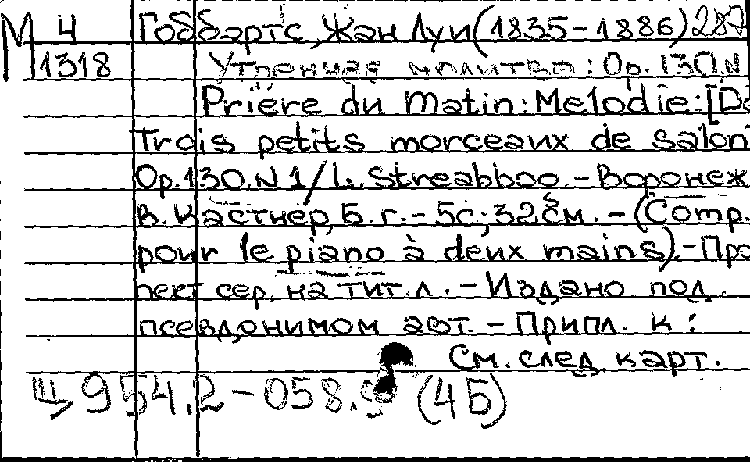 М 4 Гоббартс, Жан Луи (1835-1886) 287
1318 Утренняя молитва: Op. 130.N
Prière du matin: Melodie: [Da
Trois petits morceaux de salon
Op. 130. N 1/L. Streabboo. - Воронеж
В. Кастнер, Б. г. - 5с; 32 см. - (Comp.
pour le piano à deux mains). - Про
пект сер. на тит. л. - Издано под
псевдонимом авт. - Припл. к:
См. след карт.
Щ 954.2-058.9 (4Б)